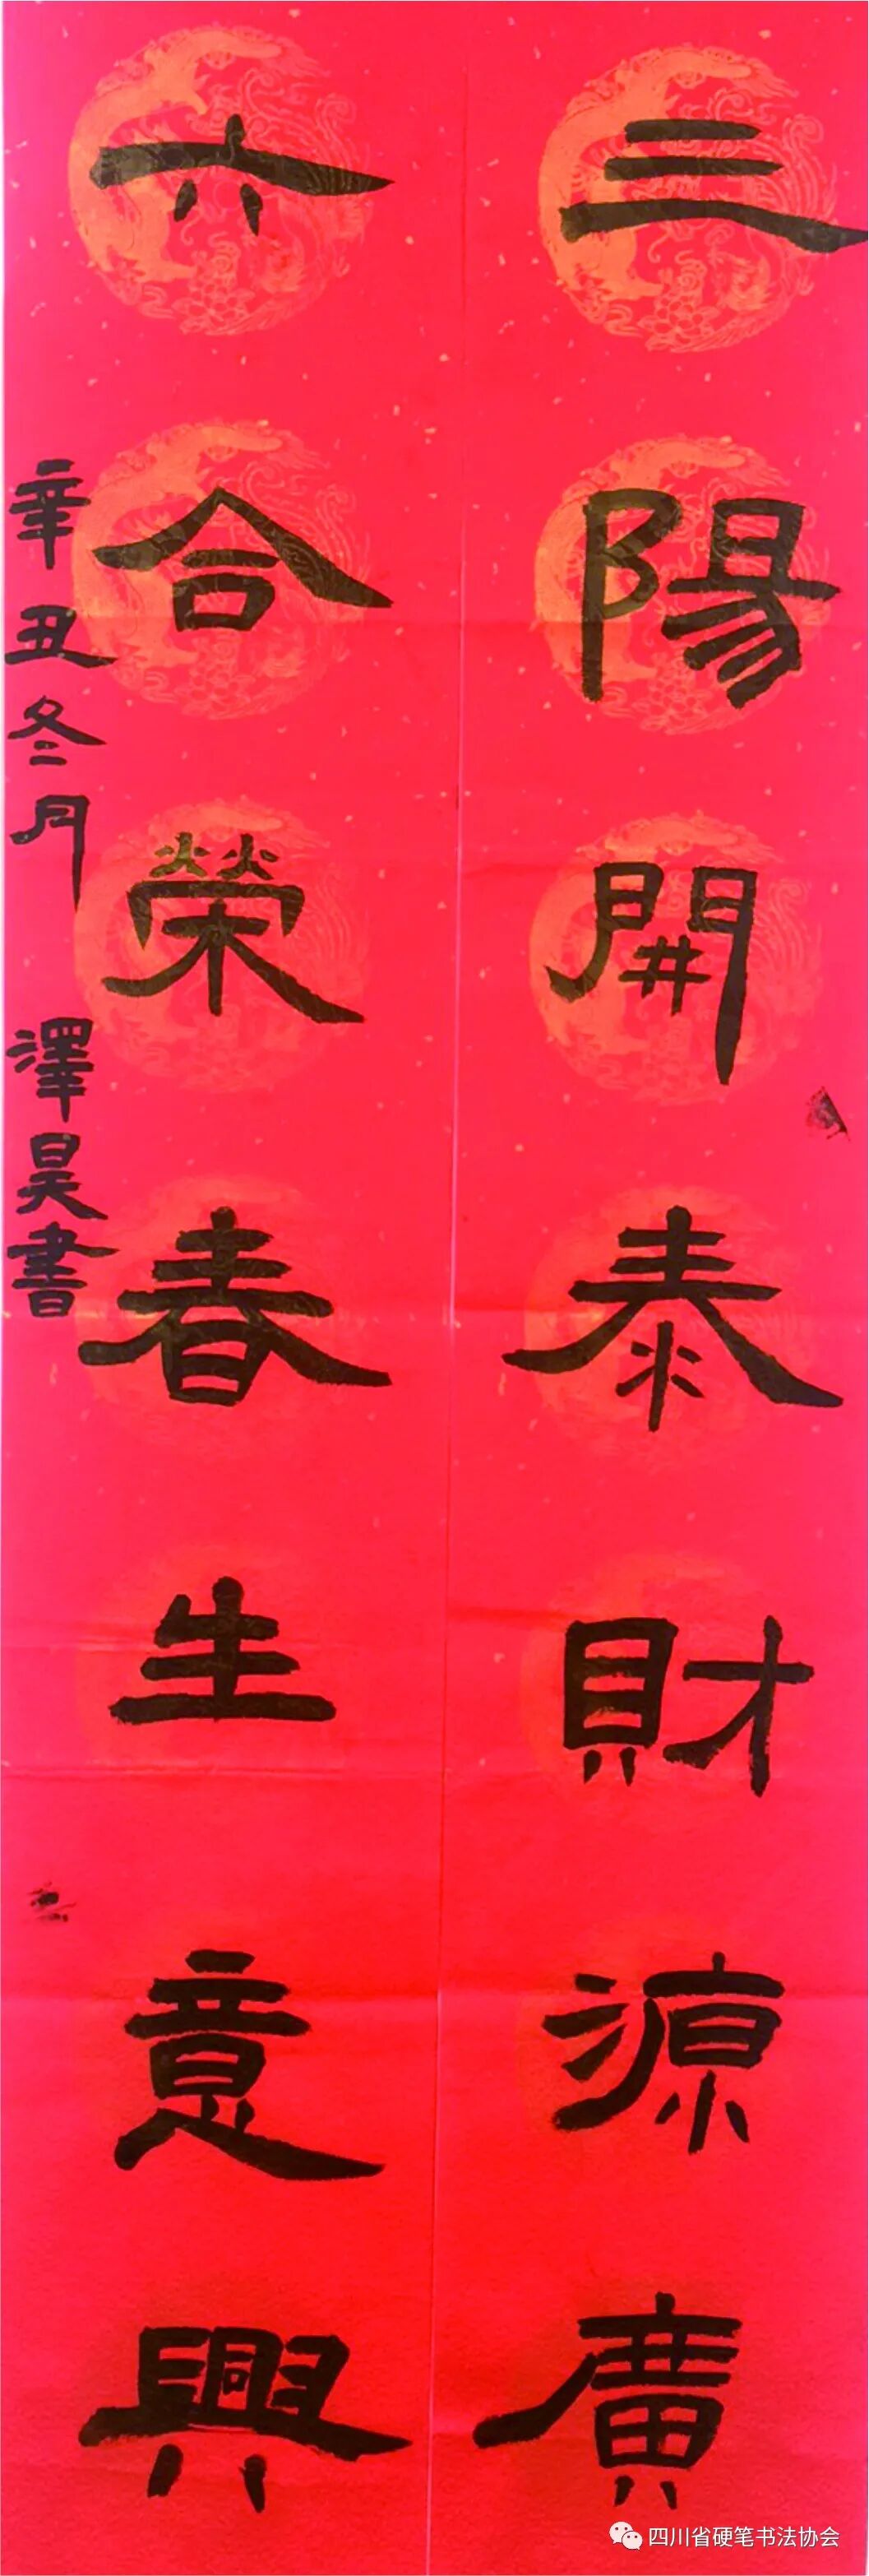 三陽開泰財源廣
六合榮春生意興
辛丑冬月 澤昊書
四川省硬笔书法协会